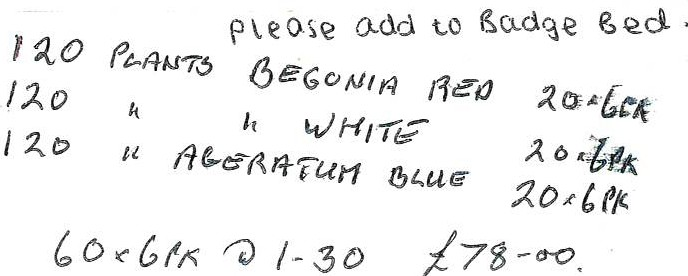 please add to Badge Bed.
120 PLANTS BEGONIA RED 20x6PK
120 " " WHITE 20x6PK
120 " AGERATUM BLUE 20x6PK
60x6PK @ 1-30 £78-00.